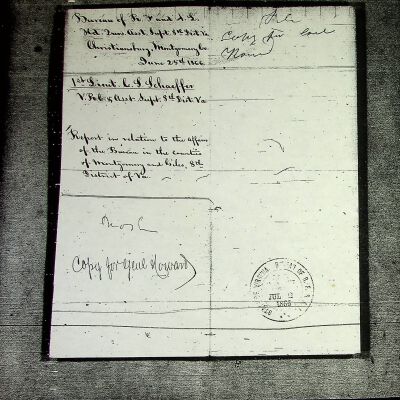 Bureau of R. F. and A. L.
Hd. Qurs. Asst. Supt. 8th Dist. Va
Christiansburg, Montgomery Co.
June 25th 1866.
1st Lieut. C. S. Schaeffer
V. R. C. & Asst. Supt. 8th Dist. Va
Report in relation to the affairs
of the Bureau in the counties
of Montgomery and Giles, 8th
District of Va.
Copy for Genl
Howard
Copy for Genl Howard
JUL
1866